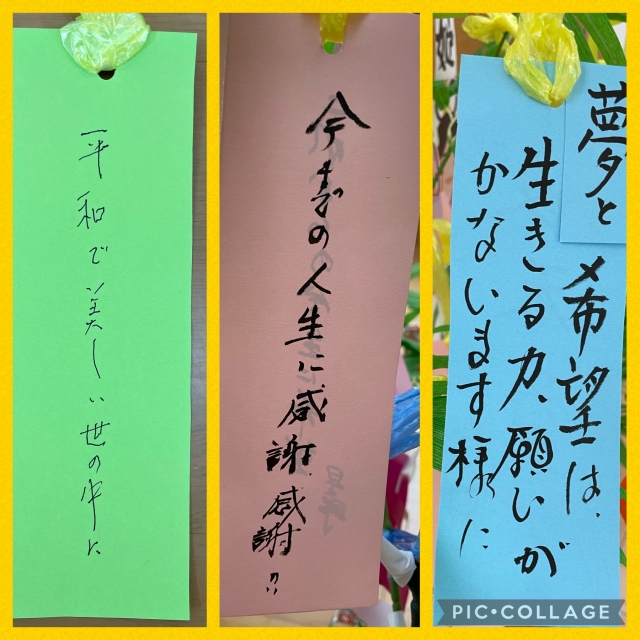 平和で美しい世の中に
今までの人生に感謝.感謝!!
夢と希望は、
生きる力、願いが
かないます様に
PIC•COLLAGE